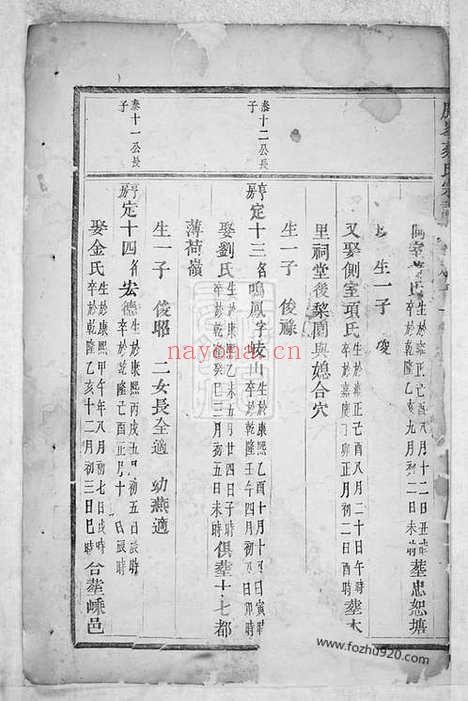 側室
生於雍正癸
月十二日丑時
卒於乾隆乙
亥九月初二日未時
葬忠恕塘
生一子 俊
又娶側室項氏
生於雍正癸
八月二十日午時
卒於嘉慶丁卯正月初二日酉時
葬本
里祠堂後棃園與媳合穴
生一子 俊祿
泰十二公長子
亨房
定十三名鳴鳳字岐山
生於康熙乙酉十月十五日寅時
卒於乾隆壬午四月初四日
娶劉氏
生於康熙丁未五月廿四日子時
卒於乾隆癸巳三月初五日未時
俱葬十七都
薄荷嶺
生一子 俊昭 二女長全適 幼燕適
泰十一公長子
亨房
定十四名宏德
生於康熙丙戌五月初五日辰時
卒於乾隆己酉正月十
日辰時
娶金氏
生於康熙甲午年八月初七日戌時
卒於乾隆乙亥十二月初三日巳時
合葬嵊邑
nayona.cn
www.fozhu920.com